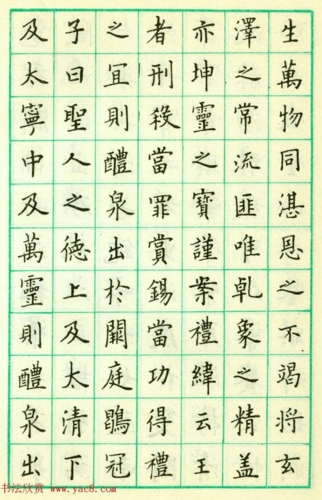 生萬物同湛恩之不竭將玄
澤之常流匪唯乹象之精蓋
亦坤靈之寶謹案禮緯云王
者刑殺當罪賞錫當功得禮
之宜則醴泉出於闕庭鶡冠
子曰聖人之德上及太清下
及太寧中及萬靈則醴泉出
书法欣赏 www.yac8.com